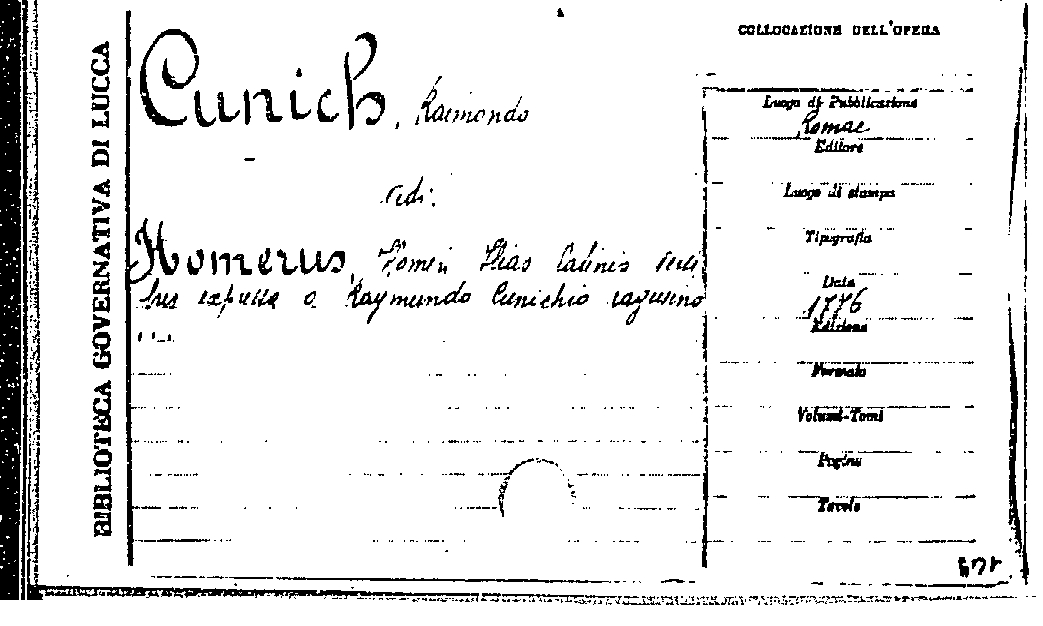 BIBLIOTECA GOVERNATIVA DI LUCCA
Cunich, Raimondo
vedi:
Homerus, Homeri Ilias latinis versi
bus expressa a Raymundo Cunichio ragusino
COLLOCAZIONE DELL'OPERA
Luogo di Pubblicazione
Romae
Editore
Luogo di stampa
Tipografia
Data
1776
Edizione
Formato
Volumi-Tomi
Pagine
Tavole